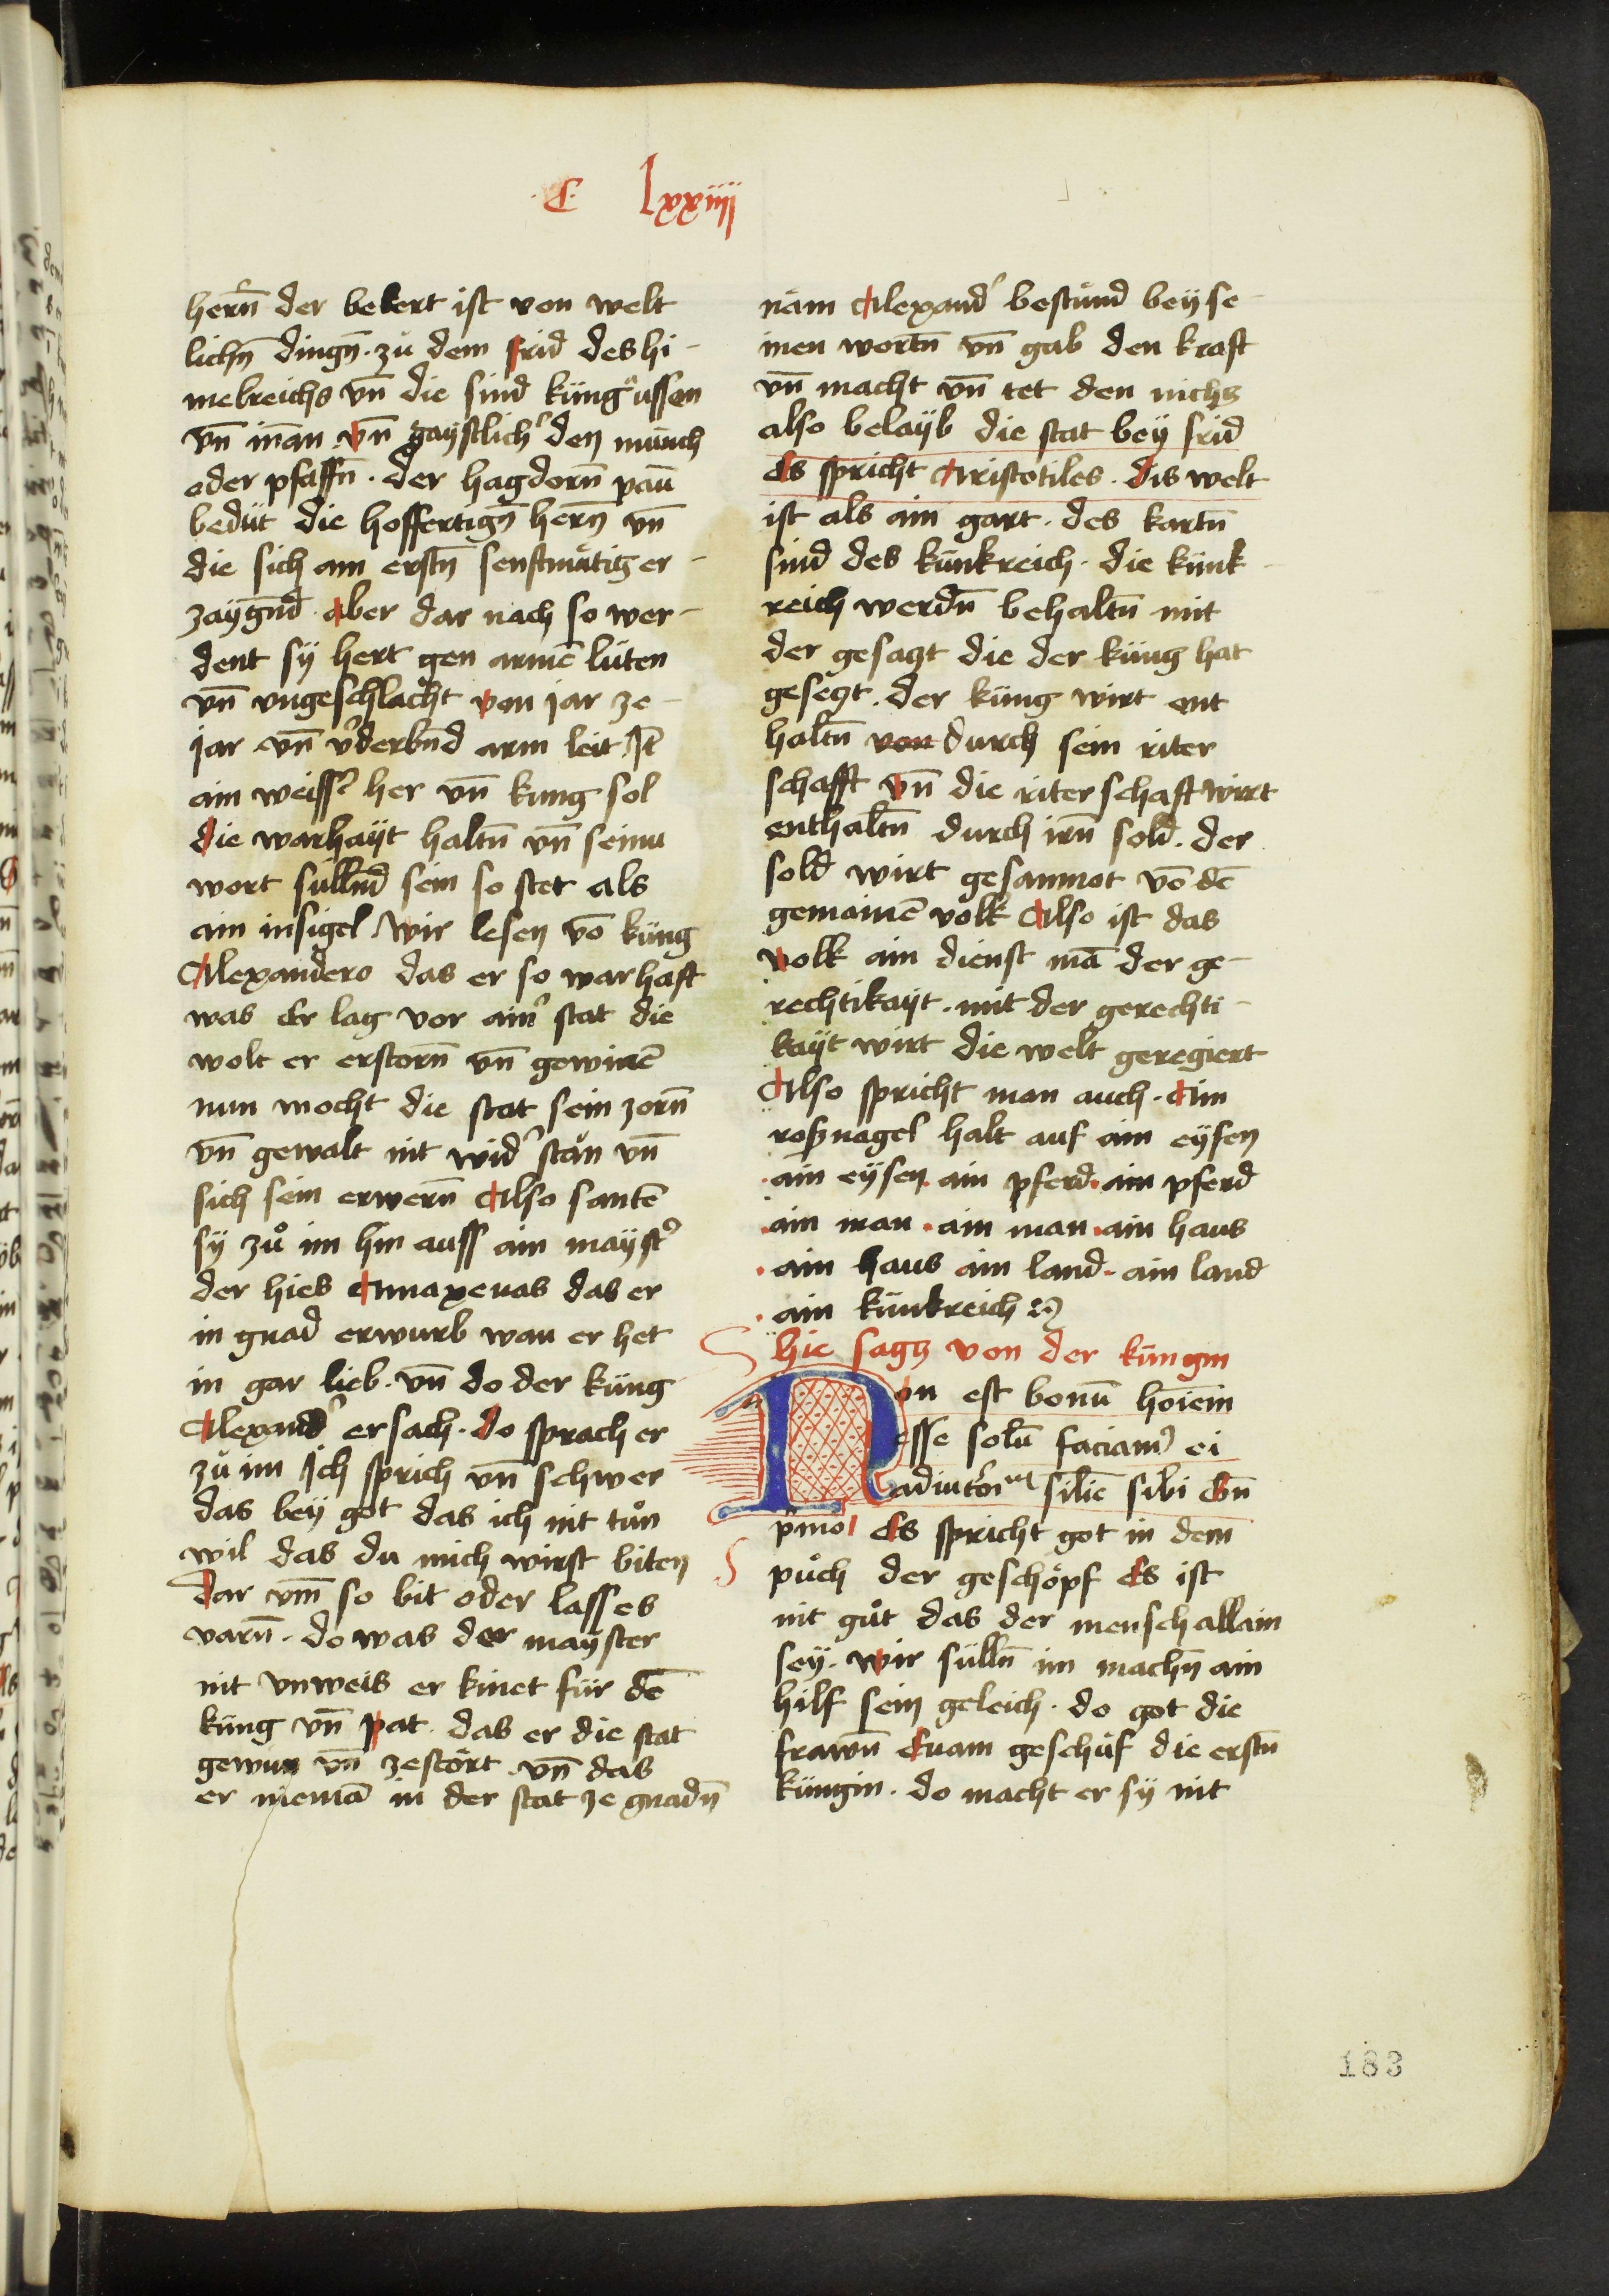 ·C· lxxiiij
hern̄ der bekert ist von welt
lichn̄ dingn̄ · zů dem frid des hi-
melreichs vn̄ die sind küng ussen
vn̄ man vn̄ gaystlich' den münch
oder pfaffn̄ · der hagdorn̄ paū
bedüt die hoffertign̄ hern̄ vn̄
die sich am erstn̄ senftmütig er-
zaygn̄d · Aber dar nach so wer-
dent sy hert gen armē lüten
vn̄ vngeschlacht von jar ze-
jar vn̄ v'derbn̄d arm leit Jt̄
ain weiss' her vn̄ kung sol
die warhayt haltn̄ vn̄ seinu
wort sülln̄d sein so stet als
ain insigel · Wir lesen vō küng
Alexandero das er so warhaft
was Er lag vor ain' stat die
wolt er erstorn̄ vn̄ gewinē
nun mocht die stat sein zorn̄
vn̄ gewalt nit wid' stån vn̄
sich sein erwern̄ Also santē
sy zů im hin auss ain mayst'
der hies Anaxenas das er
in gnad erwurb wan er het
in gar lieb · vn̄ do der küng
Alexand' ersach · do sprach er
zů im Ich sprich vn̄ schwer
das bey got das ich nit tůn
wil das du mich wirst biten
dar vm̄ so bit oder lass es
varn̄ · do was der mayster
nit vnweis er kniet für dē
küng vn̄ pat · das er die stat
gewun vn̄ zestört · vn̄ das
er niemā in der stat ze gnadn̄
näm Alexand' bestůnd bey se-
inen wortn̄ vn̄ gab den kraft
vn̄ macht vn̄ tet den nichs
also belayb die stat bey frid
Es spricht Aristotiles · dis welt
ist als ain gart · des kartn̄
sind des künkreich · die künk-
reich werdn̄ behaltn̄ mit
der gesaczt die der küng hat
geseczt · der küng wirt ent
haltn̄ von durch sein riter
schafft vn̄ die riterschaft wirt
enthaltn̄ durch irn̄ sold · der
sold wirt gesammot vō dē
gemainē volk Also ist das
volk ain dienst mā der ge-
rechtikayt · mit der gerechti-
kayt wirt die welt geregiert
Also spricht man auch · Ain
roßnagel halt auf ain eysen
· ain eysen ain pferd · ain pferd
· ain man · ain man · ain haus
· ain haus ain land · ain land
· ain künkreich ꝛc
hie sagt von der küngin
Non est bonū hoīem
esse solū faciam' ei
adiutoriū silīe sibi Gn̄
p'mo Es spricht got in dem
půch der geschöpf Es ist
nit gůt das der mensch allain
sey · wir sülln̄ im machn̄ ain
hilf sein geleich · do got die
frawn̄ Evam geschůf die erstn̄
küngin · do macht er sy nit
183